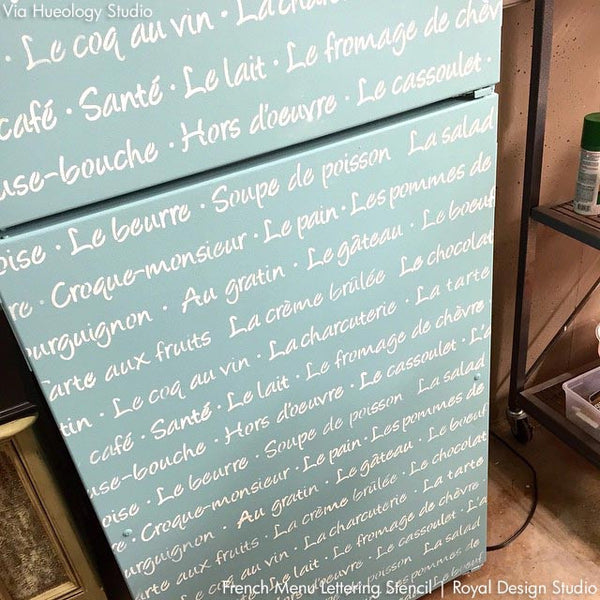 Via Hueology Studio
· Le coq au vin · La charcuterie
café · Santé · Le lait · Le fromage de chèv
use-bouche · Hors d'oeuvre · Le cassoulet ·
oise · Le beurre · Soupe de poisson La salad
re · Croque-monsieur · Le pain · Les pommes de
ourguignon · Au gratin · Le gâteau · Le boeuf
arte aux fruits La crème brûlée Le chocolat
tin · Le coq au vin · La charcuterie · La tarte
café · Santé · Le lait · Le fromage de chèvre ·
use-bouche · Hors d'oeuvre · Le cassoulet · L'a
oise · Le beurre · Soupe de poisson La salad
· Croque-monsieur · Le pain · Les pommes de
ourguignon · Au gratin · Le gâteau · Le boeuf
arte aux fruits · La crème brûlée Le chocolat
Le coq au vin · La charcuterie · La tarte
Santé · Le lait · Le fromage de chèvre
Hors d'oeuvre · Le cassoulet · L'a
Soupe de poisson La salad
Les pommes de
French Menu Lettering Stencil | Royal Design Studio